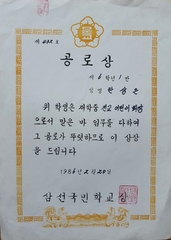 제 212 호
공로상
제 6 학년 1 반
성명 한성은
위 학생은 재학중 전교 어린이 회장
으로서 맡은 바 임무를 다하여
그 공로가 뚜렷하므로 이 상장
을 드립니다
198 년 2 월 20 일
삼선국민학교장